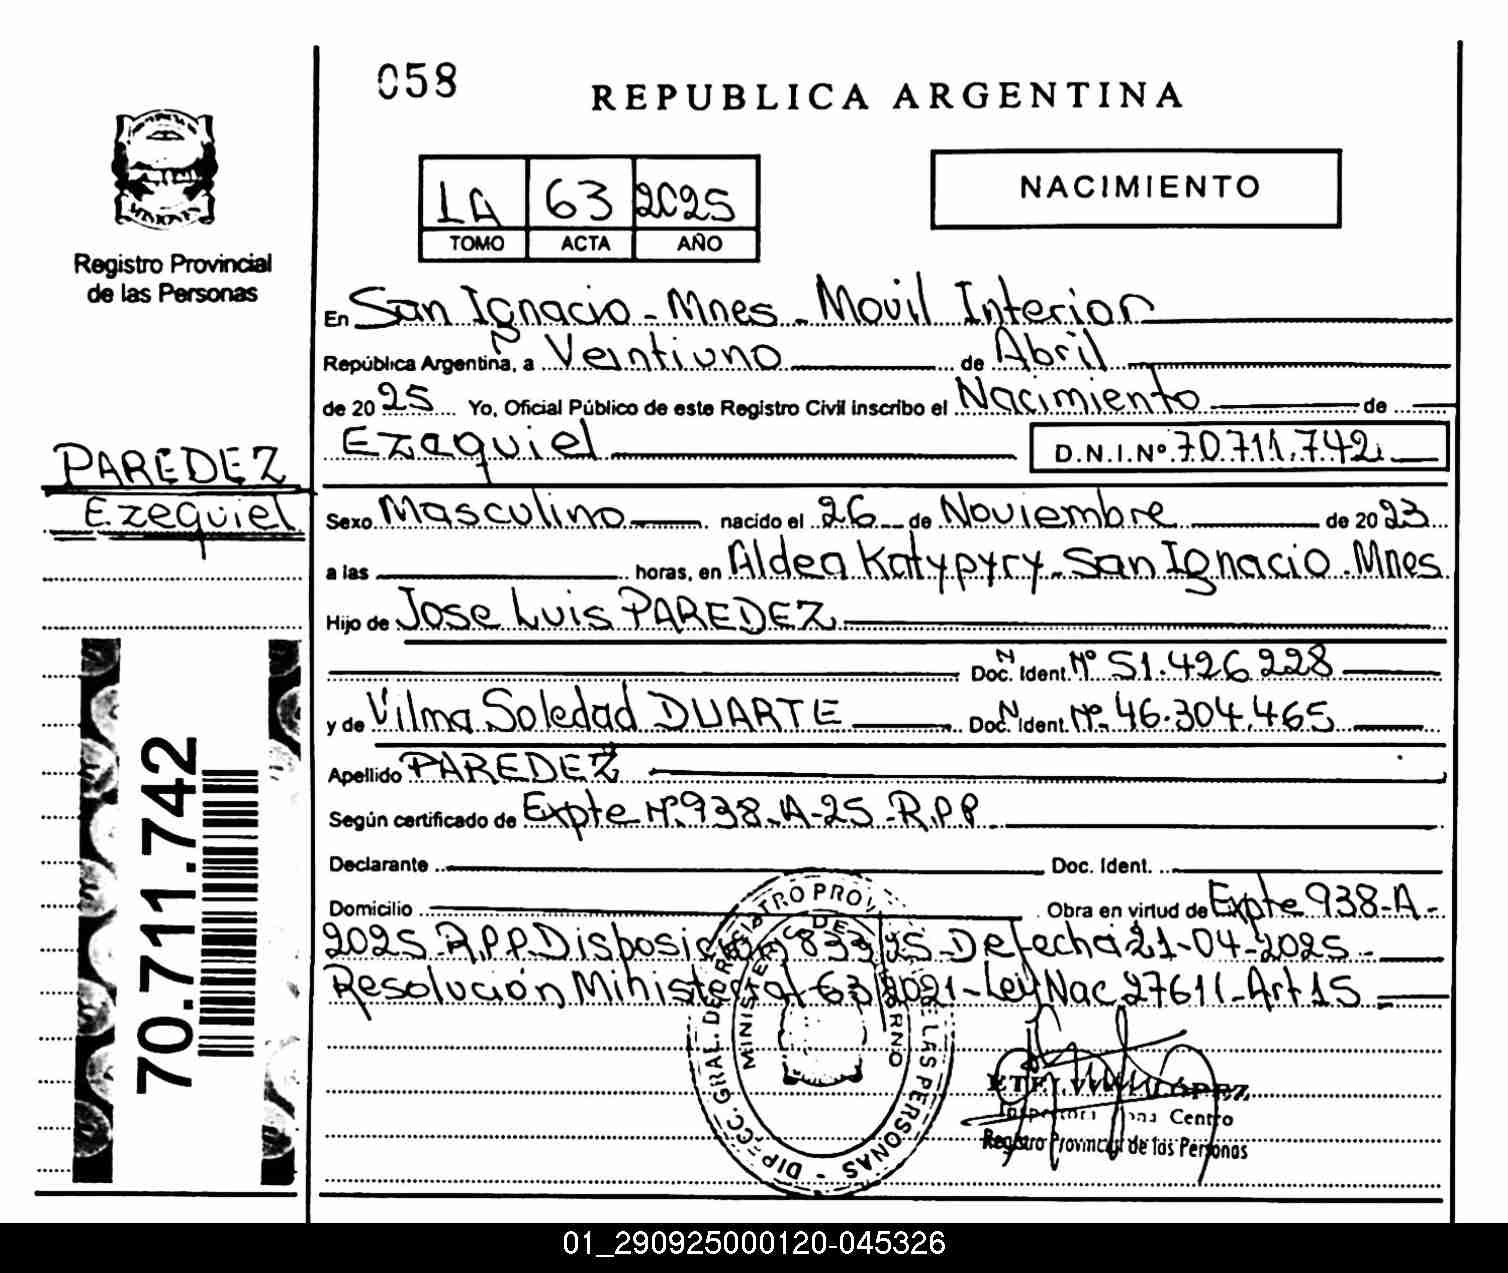 058
REPUBLICA ARGENTINA
LA 63 2025
TOMO ACTA AÑO
NACIMIENTO
Registro Provincial
de las Personas
En San Ignacio - Mnes - Movil Interior
República Argentina, a Veintiuno de Abril
de 20 25 Yo, Oficial Público de este Registro Civil inscribo el Nacimiento de
Ezequiel D.N.I.Nº 70.711.742
PAREDEZ
Ezequiel
Sexo Masculino nacido el 26 de Noviembre de 20 23
a las horas, en Aldea Katypyry - San Ignacio - Mnes
Hijo de Jose Luis PAREDEZ
Doc. Ident. Nº 51.426.228
y de Vilma Soledad DUARTE Doc. Ident. Nº 46.304.465
Apellido PAREDEZ
Según certificado de Expte Nº 938-A-25-R.P.P
Declarante Doc. Ident.
Domicilio Obra en virtud de Expte 938-A-
2025-R.P.P Disposición 833/25 - De fecha 21-04-2025 -
Resolución Ministerial 63/2021 - Ley Nac 27611 - Art 15
70.711.742
DIRECC. GRAL. DE REGISTRO PROV. DE LAS PERSONAS
MINISTERIO DE GOBIERNO
LÓPEZ
Zona Centro
Registro Provincial de las Personas
01_290925000120-045326